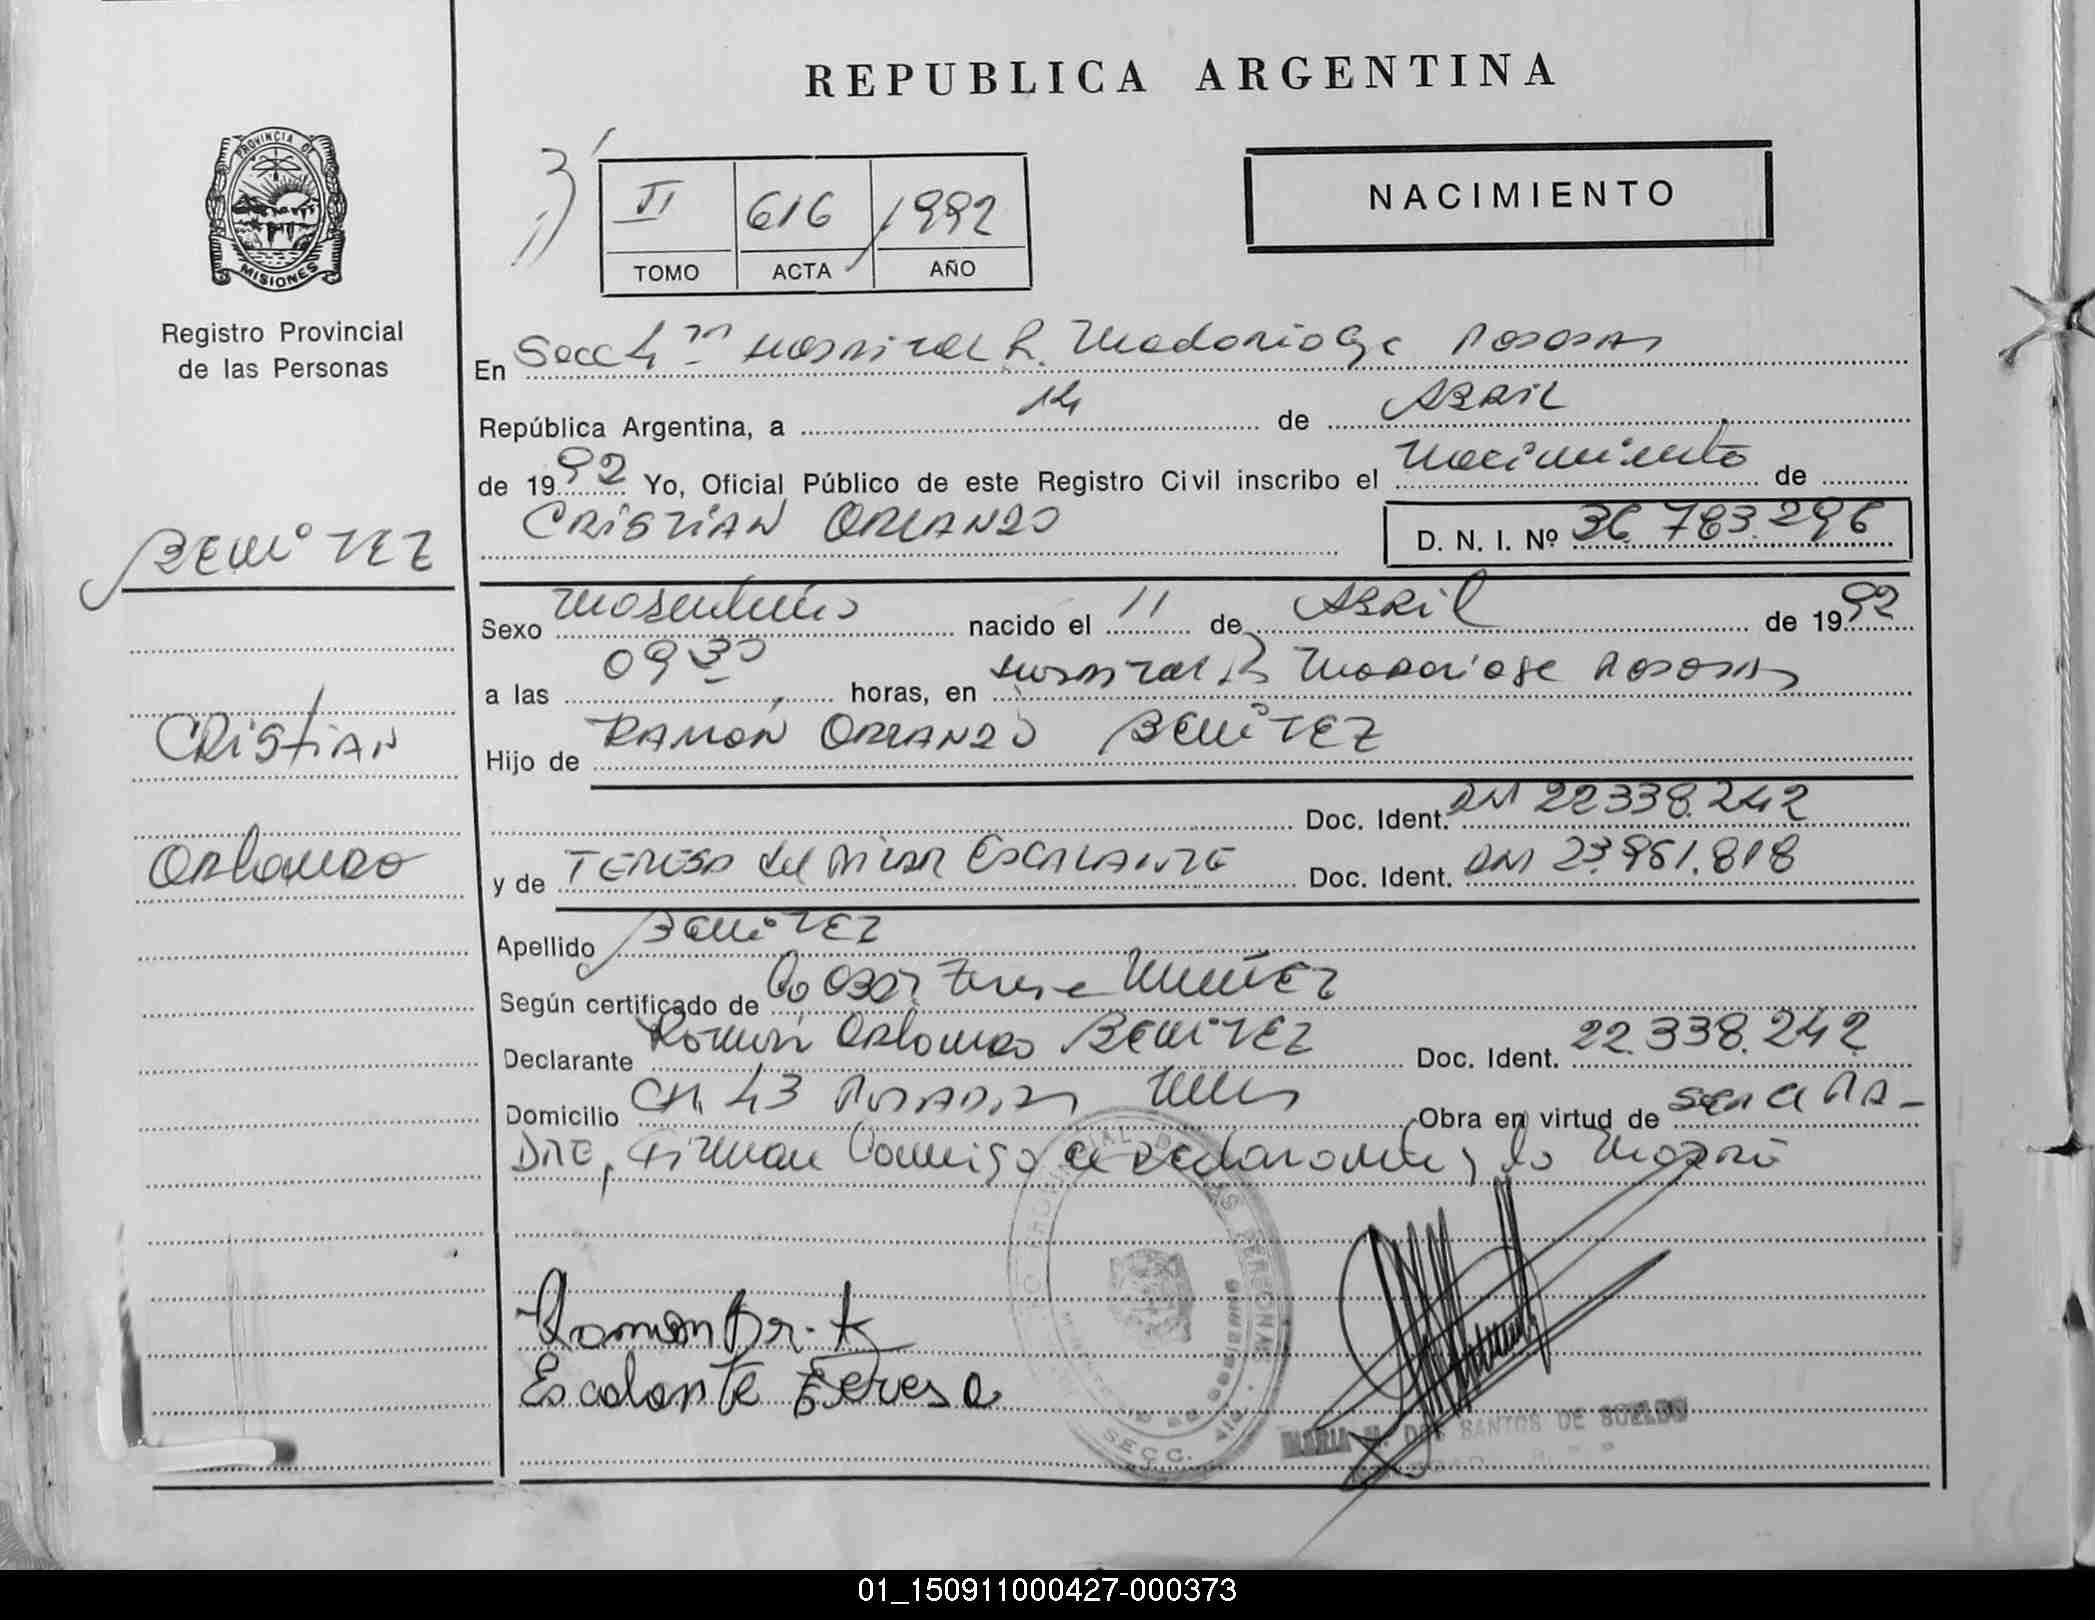 REPUBLICA ARGENTINA
PROVINCIA DE
MISIONES
Registro Provincial
de las Personas
II 616 1992
TOMO ACTA AÑO
NACIMIENTO
En Secc 4ª Hospital R. Madariaga Posadas
República Argentina, a 14 de ABRIL
de 1992 Yo, Oficial Público de este Registro Civil inscribo el nacimiento de
CRISTIAN ORLANDO
D. N. I. Nº 36.783.296
BENITEZ
CRISTIAN
Orlando
Sexo masculino nacido el 11 de ABRIL de 1992
a las 09 30 horas, en Hospital R Madariaga Posadas
Hijo de RAMON ORLANDO BENITEZ
Doc. Ident. DNI 22.338.242
y de TERESA del PILAR ESCALANTE Doc. Ident. DNI 23.951.818
Apellido BENITEZ
Según certificado de Teresa MUÑEZ
Declarante Ramón Orlando BENITEZ Doc. Ident. 22.338.242
Domicilio CH 43 POSADAS Obra en virtud de ser el PA-
DRE, Firman Conmigo el declarante y la Madre
Ramon
Escalante Teresa
PROVINCIAL DE LAS PERSONAS
SECC. 4ta
MARIA M. DOS SANTOS DE SUELDO
01_150911000427-000373